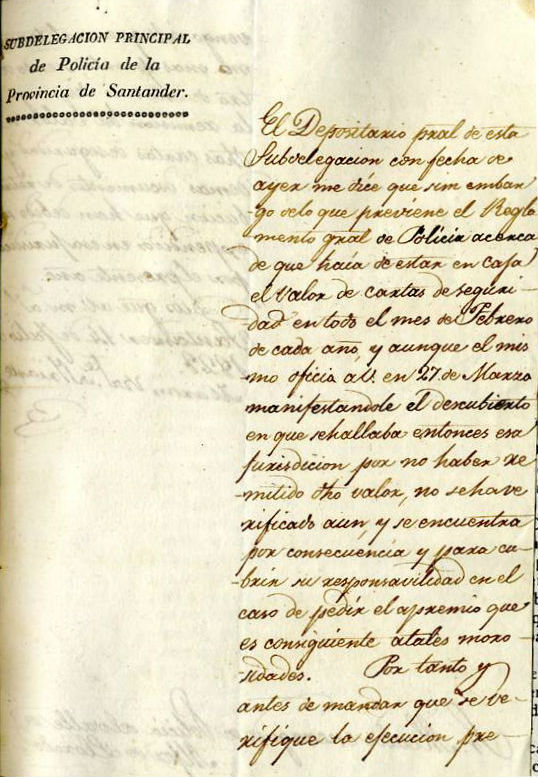 SUBDELEGACION PRINCIPAL
de Policía de la
Provincia de Santander.
El Depositario pral de esta
Subdelegacion con fecha de
ayer me dice que sim embar
go delo que previene el Regla
mento gral de Policia acerca
de que hacía de estar en caja
el Valor de cartas de seguri-
dad en todo el mes de Febrero
de cada año, y aunque el mis
mo oficia á V. en 27 de Marzo
manifestandole el descubierto
en que sehallaba entonces esa
jurisdicion por no haber re
mitido dho valor, no seha ve
rificado aun, y se encuentra
por consecuencia y para cu-
brir su responsavilidad en el
caso de pedir el apremio que
es consiguiente atales moro
sidades. Por tanto y
antes de mandar que se ve-
rifique la ejecucion pre-